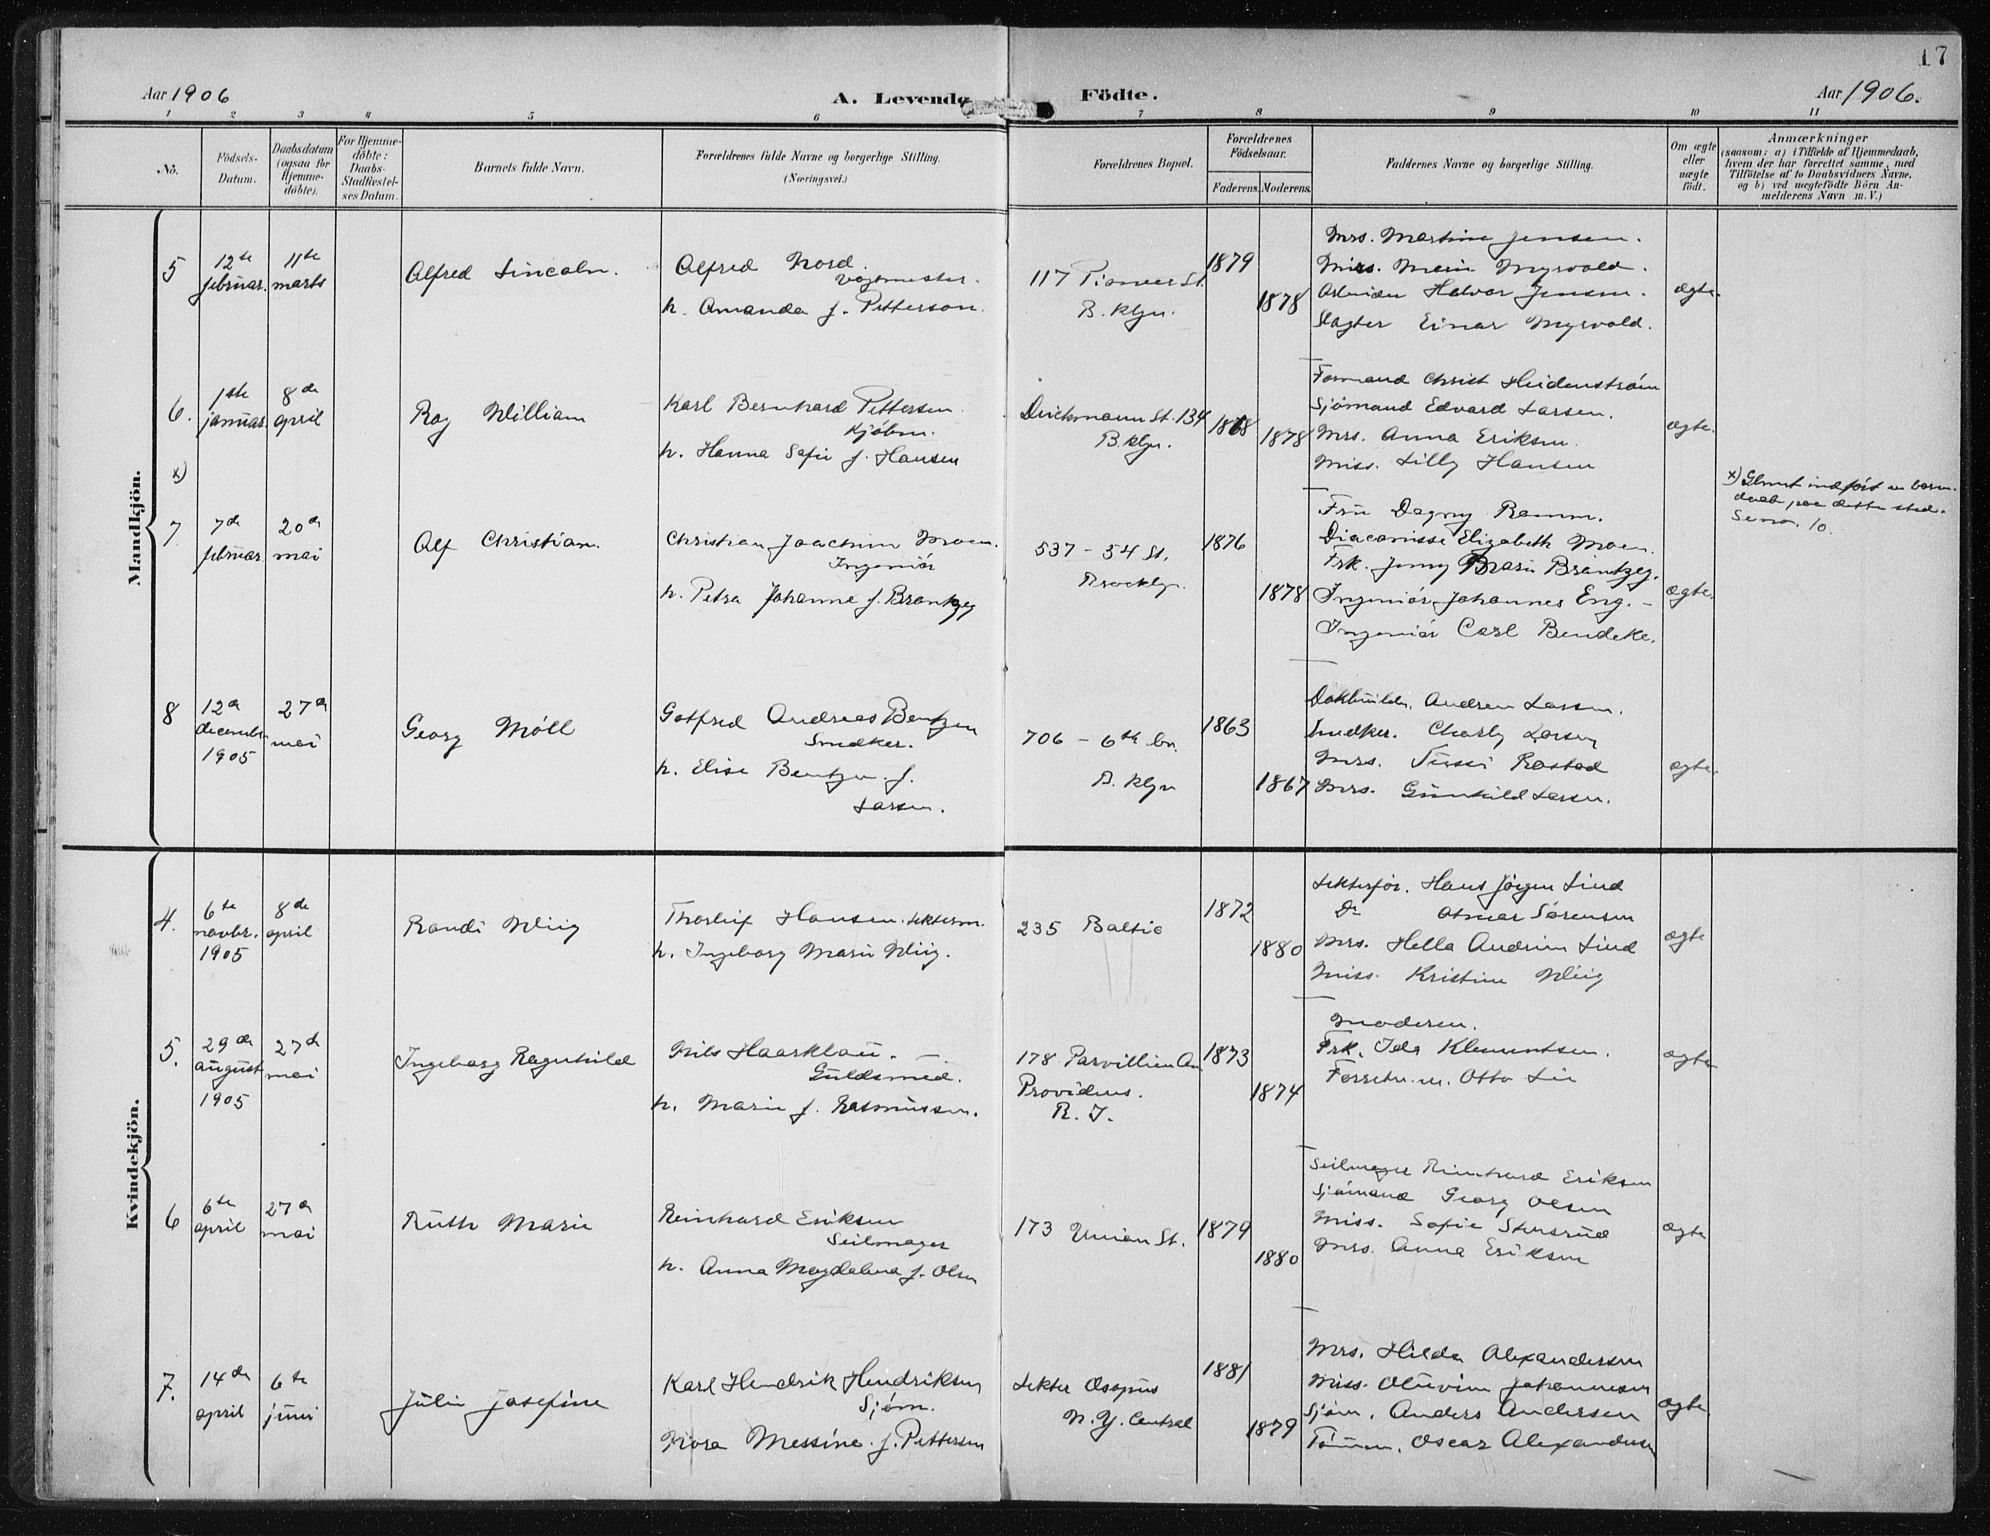 17
Aar 1906
A. Levende
Födte.
Aar 1906.
1 2 3 4 5 6 7 8 9 10 11
No.
Födsels-
Datum.
Daabsdatum
(ogsaa for
Hjemme-
döbte).
For Hjemme-
döbte:
Daabs-
Stadfæstel-
ses Datum.
Barnets fulde Navn.
Forældrenes fulde Navne og borgerlige Stilling.
(Næringsvei.)
Forældrenes Bopæl.
Forældrenes
Födselsaar.
Faderens. Moderens.
Faddernes Navne og borgerlige Stilling.
Om ægte
eller
uægte
födt.
Anmærkninger
(saasom: a) i Tilfælde af Hjemmedaab,
hvem der har forrettet samme, med
Tilföielse af to Daabsvidners Navne,
og b) ved uægtefödte Börn An-
melderens Navn m. V.)
Mandkjön.
5
12te
februar.
11te
marts
Alfred Lincoln.
Alfred Nord
vagtmester.
h. Amanda f. Petterson.
117 Pioneer St.
B.klyn.
1879
1878
Mrs. Martine Jensen.
Mrs. Marie Myrvold.
Arbeider Halvor Jensen.
Slagter Einar Myrvold.
ægte.
6.
1ste
januar.
8de
april
Roy William
Karl Bernhard Pettersen
Kjöbm.
h. Hanna Sofie f. Hansen
Dickmann St. 134
B.klyn.
1868
1878
Formand Christ Heidenström
Sjömand Edvard Larsen.
Mrs. Anna Eriksen.
Miss. Lilly Hansen
ægte.
x)
x) Glemt indført en barne-
daab paa dette sted.
Se no. 10.
7
7de
februar
20de
mai
Alf Christian.
Christian Joachim Moen.
Ingeniör
h. Petra Johanne f. Brantzeg
537 - 54 St.
Brooklyn.
1876
1878
Fru Dagny Ramm.
Diaconisse Elizabeth Moen.
Frk. Jenny Marie Brantzeg.
Ingeniör Johannes Eng. -
Ingeniör Carl Bendeke.
ægte.
8
12de
december
1905
27de
mai
Georg Möll
Gotfred Andreas Bentzen
Snedker.
h. Elise Bentzen f.
Larsen.
706 - 6th Av.
B.klyn
1863
1867
Dokbuilder. Andrew Larsen.
Snedker. Charly Larsen
Mrs. Rostad
Mrs. Gunhild Larsen.
ægte.
Kvindekjön.
4.
6te
novbr.
1905
8de
april
Randi Wiig
Thorleif Hansen. lekterm.
h. Ingeborg Marie Wiig.
235 Baltic
1872
1880
Lekterför. Hans Jörgen Lind
Do Otmar Sörensen
Mrs. Hella Andrine Lind
Miss. Kristine Wiig
ægte
5.
29de
august
1905
27de
mai
Ingeborg Ragnhild
Nils Haarklau.
Guldsmed.
h. Marie f. Rasmussen.
178 Parvillien Av.
Providens.
R. I.
1873
1874
Moderen.
Frk. Ida Klementsen.
Forretn.m. Otto Lie
ægte
6
6te
april
27de
mai
Ruth Marie
Reinhard Eriksen
Seilmager
h. Anna Magdalena f. Olsen
173 Union St.
1879
1880
Seilmager Reinhard Eriksen
Sjömand Georg Olsen
Miss. Sofie Stensrud
Mrs. Anna Eriksen
ægte
7.
14de
april
6te
juni
Julie Josefine
Karl Hendrik Hendriksen
Sjöm.
Nora Messine f. Pettersen
Lekter Osopus
N.Y. Central
1881
1879
Mrs. Hilda Alexandersen
Miss. Oluvine Johannesen
Sjöm. Anders Andersen
Tömm. Oscar Alexandersen
ægte